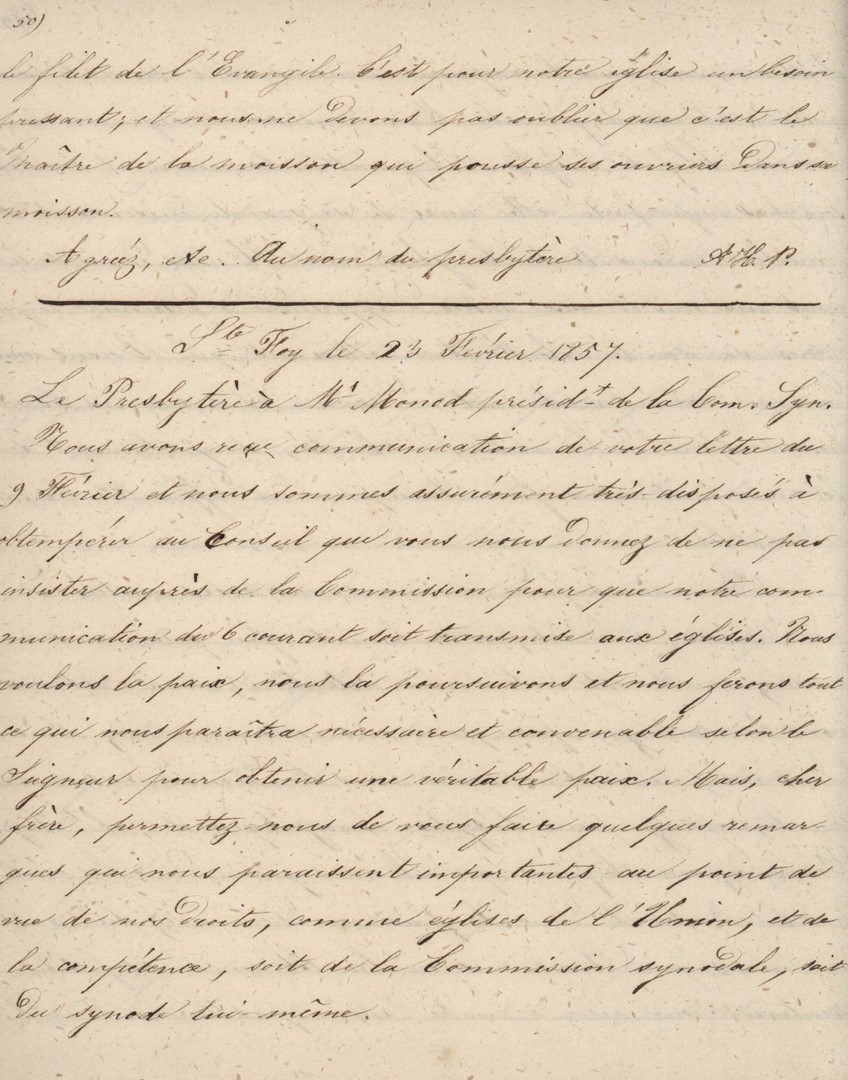 50)
le filet de l'Evangile. C'est pour notre église un besoin
pressant; et nous ne devons pas oublier que c'est le
Maître de la moisson qui pousse ses ouvriers dans sa
moisson.
Agréez, etc. Au nom du presbytère A H. P.
Ste Foy le 23 Février 1857.
Le Presbytère à Mr Monod présidt de la Com. Syn.
Nous avons reçu communication de votre lettre du
9 Février et nous sommes assurément très-disposés à
obtempérer au Conseil que vous nous donnez de ne pas
insister auprès de la Commission pour que notre com-
munication du 6 courant soit transmise aux églises. Nous
voulons la paix, nous la poursuivons et nous ferons tout
ce qui nous paraîtra nécessaire et convenable selon le
Seigneur pour obtenir une véritable paix. Mais, cher
frère, permettez-nous de vous faire quelques remar-
ques qui nous paraissent importantes au point de
vue de nos droits, comme églises de l'Union, et de
la compétence, soit de la Commission synodale, soit
du synode lui-même.